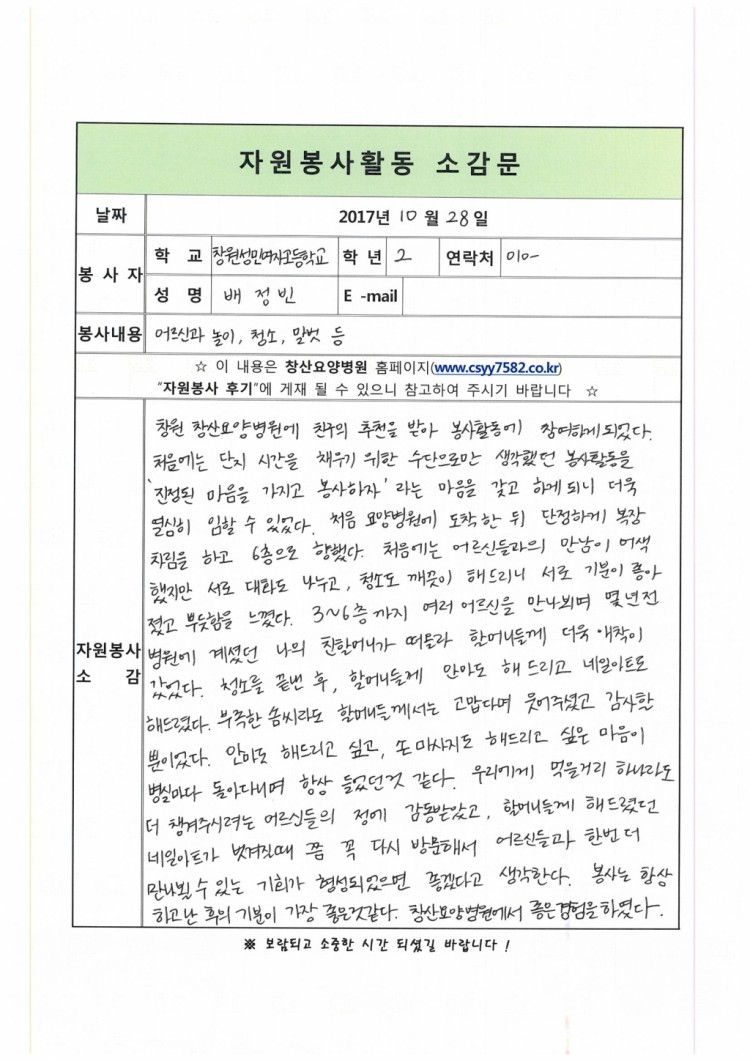 자원봉사활동 소감문
날짜 2017년 10월 28일
봉사자 학교 창원성민여자고등학교 학년 2 연락처 010-
성명 배정빈 E-mail
봉사내용 어르신과 놀이, 청소, 말벗 등
☆ 이 내용은 창산요양병원 홈페이지(www.csyy7582.co.kr)
"자원봉사 후기"에 게재 될 수 있으니 참고하여 주시기 바랍니다 ☆
자원봉사 소감
창원 창산요양병원에 친구의 추천을 받아 봉사활동에 참여하게 되었다.
처음에는 단지 시간을 채우기 위한 수단으로만 생각했던 봉사활동을
'진정된 마음을 가지고 봉사하자' 라는 마음을 갖고 하게 되니 더욱
열심히 임할 수 있었다. 처음 요양병원에 도착한 뒤 단정하게 복장
차림을 하고 6층으로 향했다. 처음에는 어르신들과의 만남이 어색
했지만 서로 대화도 나누고, 청소도 깨끗이 해드리니 서로 기분이 좋아
졌고 뿌듯함을 느꼈다. 3~6층까지 여러 어르신을 만나뵈며 몇년전
병원에 계셨던 나의 친할머니가 떠올라 할머니들께 더욱 애착이
갔었다. 청소를 끝낸 후, 할머니들께 안마도 해 드리고 네일아트도
해드렸다. 부족한 솜씨라도 할머니들께서는 고맙다며 웃어주셨고 감사할
뿐이었다. 안마도 해드리고 싶고, 손 마사지도 해드리고 싶은 마음이
병실마다 돌아다니며 항상 들었던것 같다. 우리에게 먹을거리 하나라도
더 챙겨주시려는 어르신들의 정에 감동받았고, 할머니들께 해드렸던
네일아트가 벗겨질때 쯤 꼭 다시 방문해서 어르신들과 한번 더
만나뵐 수 있는 기회가 형성되었으면 좋겠다고 생각한다. 봉사는 항상
하고난 후의 기분이 가장 좋은것같다. 창산요양병원에서 좋은경험을하였다.
※ 보람되고 소중한 시간 되셨길 바랍니다 !